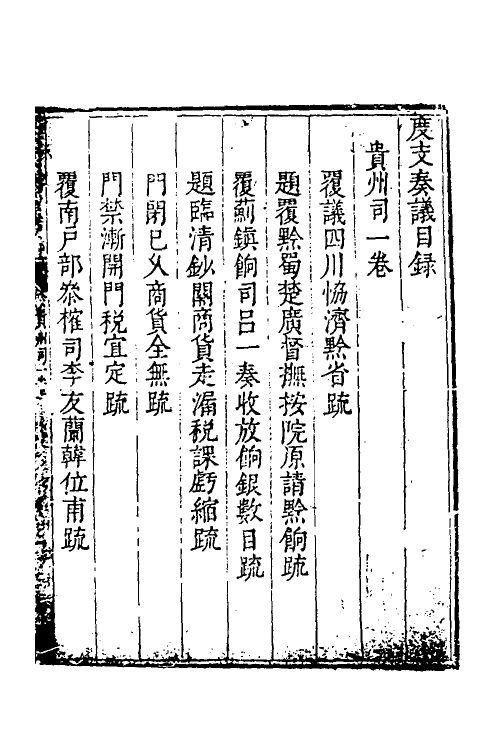 度支奏議目録
貴州司一卷
覆議四川恊濟黔省疏
題覆黔蜀楚廣督撫按院原請黔餉疏
覆薊鎮餉司呂一奏收放餉銀數目疏
題臨清鈔關商貨走漏稅課虧縮疏
門閉已久商貨全無疏
門禁漸開門稅宜定疏
覆南戶部叅榷司李友蘭韓位甫疏
貴州司一